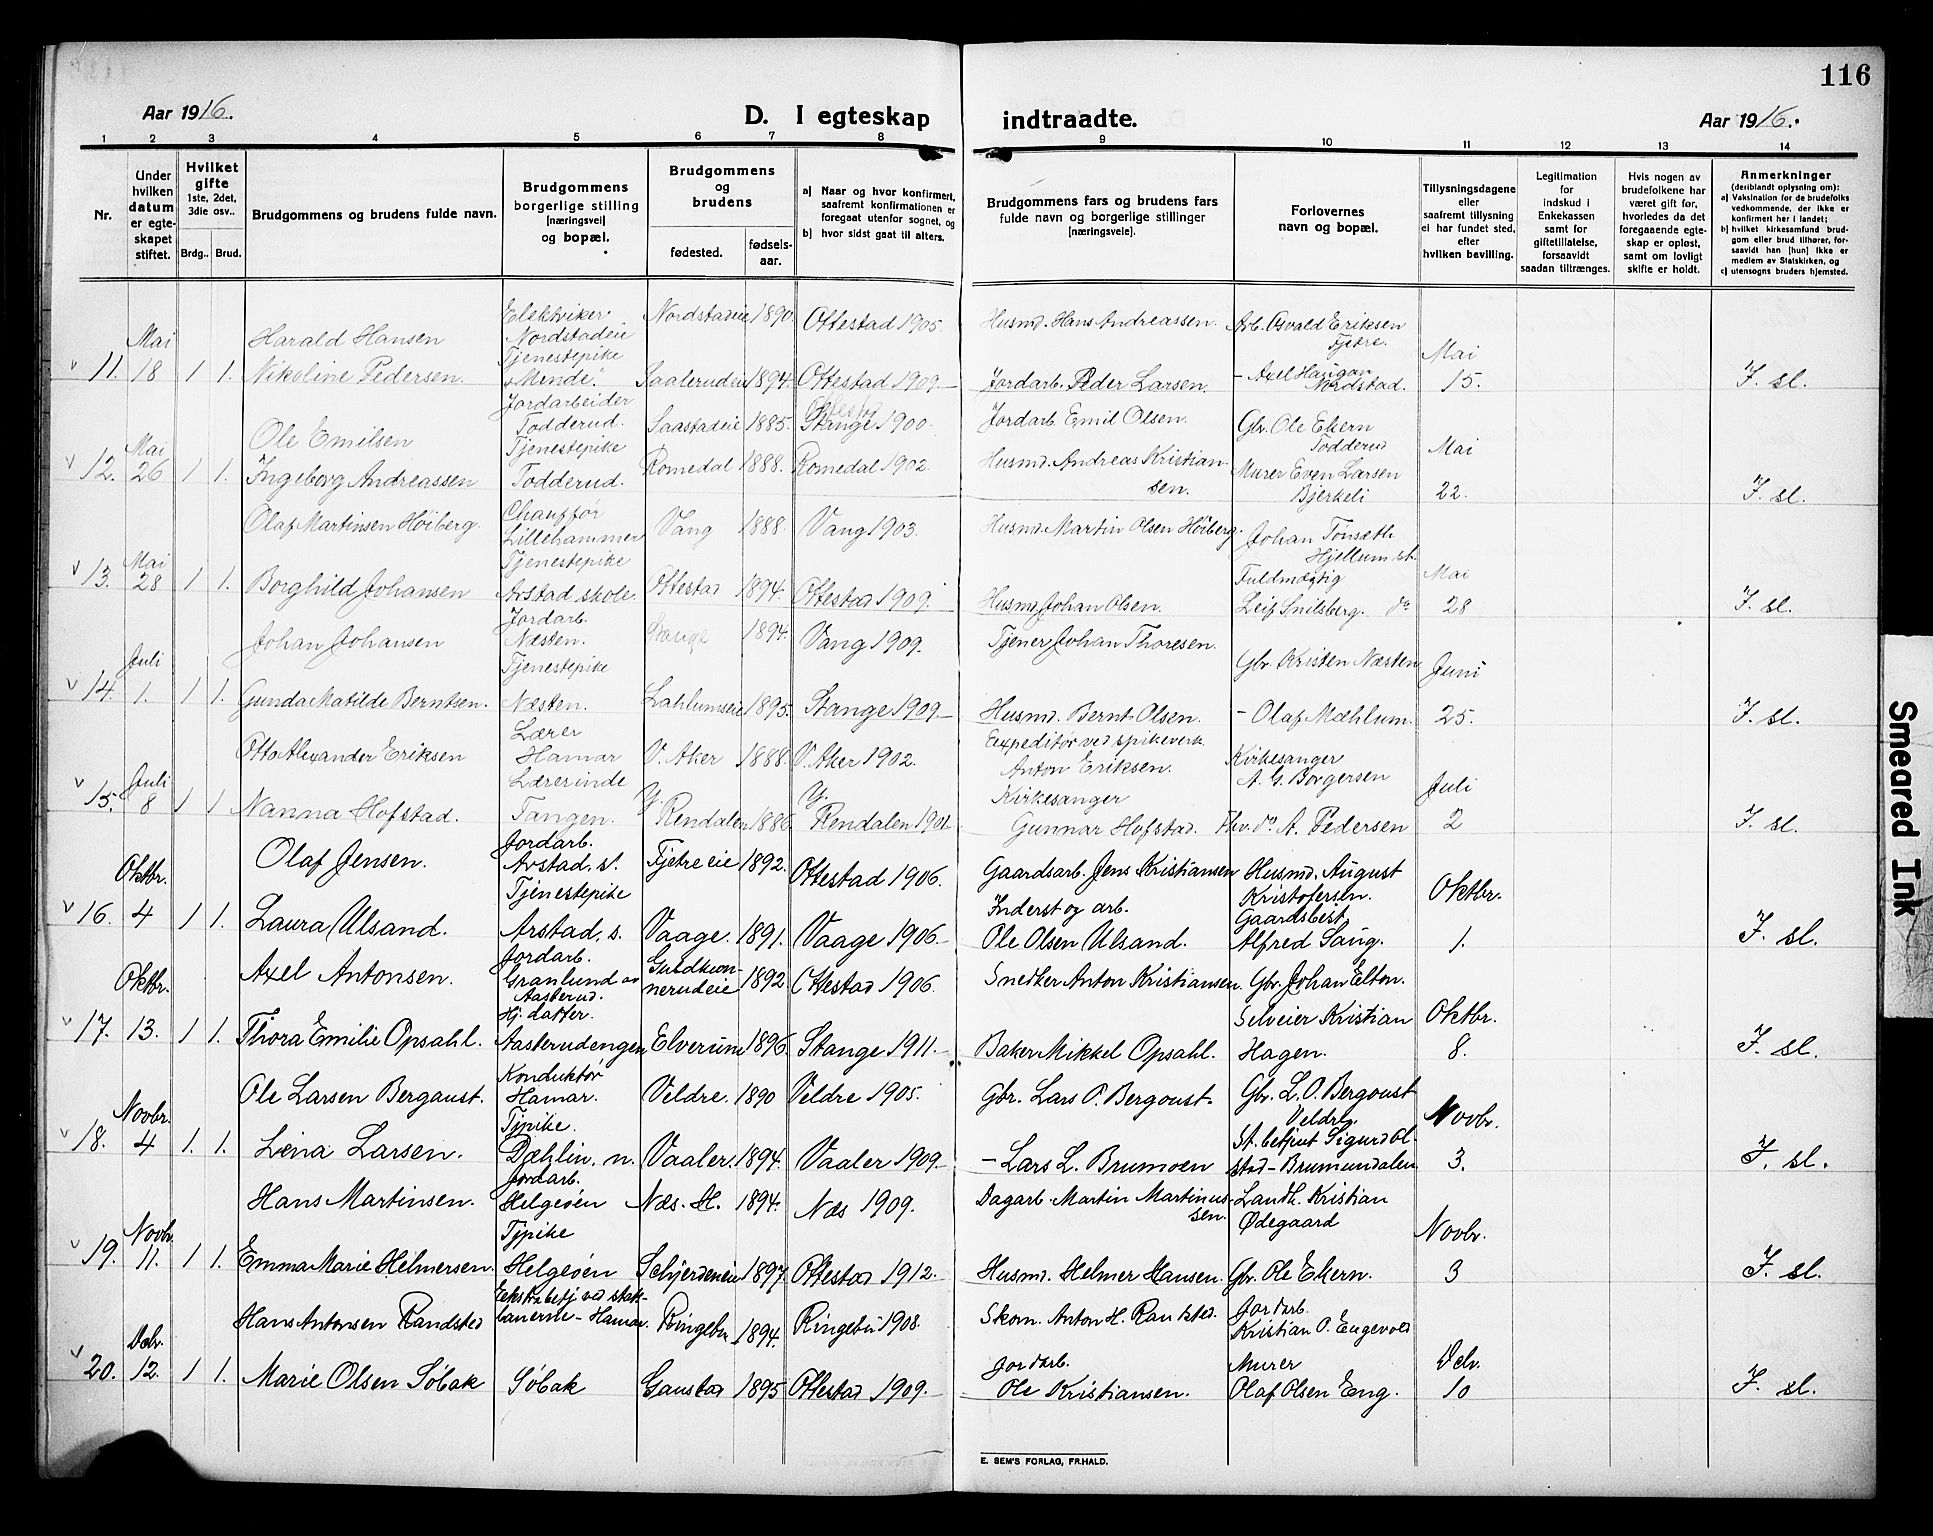 116
Aar 1916.
D. I egteskap indtraadte.
Aar 1916.
1 2 3 4 5 6 7 8 9 10 11 12 13 14
Nr.
Under hvilken datum er egteskapet stiftet.
Hvilket gifte 1ste, 2det, 3die osv..
Brdg.. Brud.
Brudgommens og brudens fulde navn.
Brudgommens borgerlige stilling [næringsvei] og bopæl.
Brudgommens og brudens
fødested.
fødselsaar.
a) Naar og hvor konfirmert, saafremt konfirmationen er foregaat utenfor sognet, og
b) hvor sidst gaat til alters.
Brudgommens fars og brudens fars fulde navn og borgerlige stillinger [næringsveie].
Forlovernes navn og bopæl.
Tillysningsdagene eller saafremt tillysning ei har fundet sted, efter hvilken bevilling.
Legitimation for indskud i Enkekassen samt for giftetillatelse, forsaavidt saadan tiltrænges.
Hvis nogen av brudefolkene har været gift før, hvorledes da det foregaaende egteskap er opløst, samt om lovligt skifte er holdt.
Anmerkninger (deriblandt oplysning om):
a) Vaksination for de brudefolks vedkommende, der ikke er konfirmert her i landet;
b) hvilket kirkesamfund brudgom eller brud tilhører, forsaavidt han [hun] ikke er medlem av Statskirken, og
c) utensogns bruders hjemsted.
v 11. Mai 18 1 1.
Harald Hansen Elektriker Nordstadeie Nordstadeie 1890 Ottestad 1905. Husmd. Hans Andreassen. Arb. Osvald Eriksen Tjetre.
Nikoline Pedersen. Tjenestepike "Mende". Saalerudeie 1894. Ottestad 1909. Jordarb. Peder Larsen. - Axel Haugan Nordstad. Mai 15. I. sl.
v 12. Mai 26 1 1.
Ole Emilsen Jordarbeider Todderud. Saastadeie 1885. Ottestad Stange 1900. Jordarb. Emil Olsen. Gbr. Ole Ekern Todderud
Ingeborg Andreassen Tjenestepike Todderud. Romedal 1888. Romedal 1902. Husmd. Andreas Kristiansen. Murer Even Larsen Bjerkeli Mai 22. I. sl.
v 13. Mai 28 1 1.
Olaf Martinsen Höiberg. Chauffør Lillehammer Vang 1888 Vang 1903. Husmd. Martin Olsen Höiberg. Johan Tönsæth Hjellum st.
Borghild Johansen Tjenestepike Arstad skole. Ottestad 1894. Ottestad 1909. Husmd. Johan Olsen. Fuldmægtig Leif Snilsberg. do Mai 28 I. sl.
v 14. Juli 1. 1 1.
Johan Johansen Jordarb. Næsten. Stange 1894. Vang 1909. Tjener Johan Thoresen. Gbr. Kristen Næsten
Gunda Matilde Berntsen. Tjenestepike Næsten. Lahlumseie 1895. Stange 1909. Husmd. Bernt Olsen. - Olaf Mæhlum. Juni 25. I. sl.
v 15. Juli 8 1 1
Otto Alexander Eriksen Lærer Hamar V. Aker 1888. V. Aker 1902. Expeditør ved spikeverk. Anton Eriksen. Kirkesanger A. G. Borgersen
Nanna Hofstad. Lærerinde Tangen. Y. Rendalen 1886. Y. Rendalen 1901. Kirkesanger Gunnar Hofstad. Fhv. do A. Pedersen Juli 2 I. sl.
v 16. Oktbr. 4 1 1.
Olaf Jensen. Jordarb. Arstad. s. Tjetre eie 1892. Ottestad 1906. Gaardsarb. Jens Kristiansen Husmd. August Kristofersen.
Laura Ulsand. Tjenestepike Arstad. s. Vaage. 1891. Vaage 1906. Inderst og arb. Ole Olsen Ulsand. Gaardsbest Alfred Saug. Oktbr. 1. I. sl.
v 17. Oktbr. 13. 1 1.
Axel Antonsen. Jordarb. Granlund av Aasterud. 1892 Ottestad 1906. Snedker Anton Kristiansen. Gbr. Johan Elton.
Thora Emilie Opsahl. Hj. datter. Aasterudengen Elverum 1896. Stange 1911. Baker Mikkel Opsahl. Selveier Kristian Hagen. Oktbr. 8. I. sl.
v 18. Novbr. 4 1. 1.
Ole Larsen Bergaust. Konduktør Hamar. Veldre. 1890 Veldre 1905. Gbr. Lars O. Bergoust. Gbr. L. O. Bergoust Veldre.
Lena Larsen. Tjpike. Dæhlin. n. Vaaler. 1894. Vaaler 1909. - Lars L. Brumoen St. betjut Sigurd Olstad - Brumundalen Novbr. 3. I. sl.
v 19. Novbr. 11. 1 1.
Hans Martinsen. Jordarb. Helgøen Næs. H. 1894. Næs 1909. Dagarb. Martin Martinussen. Landh. Kristian Ødegaard
Emma Marie Helmersen. Tjpike Helgøen Schjerdeneie 1897. Ottestad 1912. Husmd. Helmer Hansen. Gbr. Ole Ekern. Novbr. 3 I. sl.
v 20. Debr. 12. 1 1.
Hans Antonsen Randsted Ekstrabetj ved statbanerne - Hamar. Ringebu 1894. Ringebu 1908. Skom. Anton H. Randsted. Jordarb. Kristian O. Engevold
Marie Olsen Søbak Søbak Gaustad 1895 Ottestad 1909. Jordarb. Ole Kristiansen. Murer Olaf Olsen Eng. Debr. 10 I. sl.
E. SEM'S FORLAG, FR.HALD.
Smeared Ink